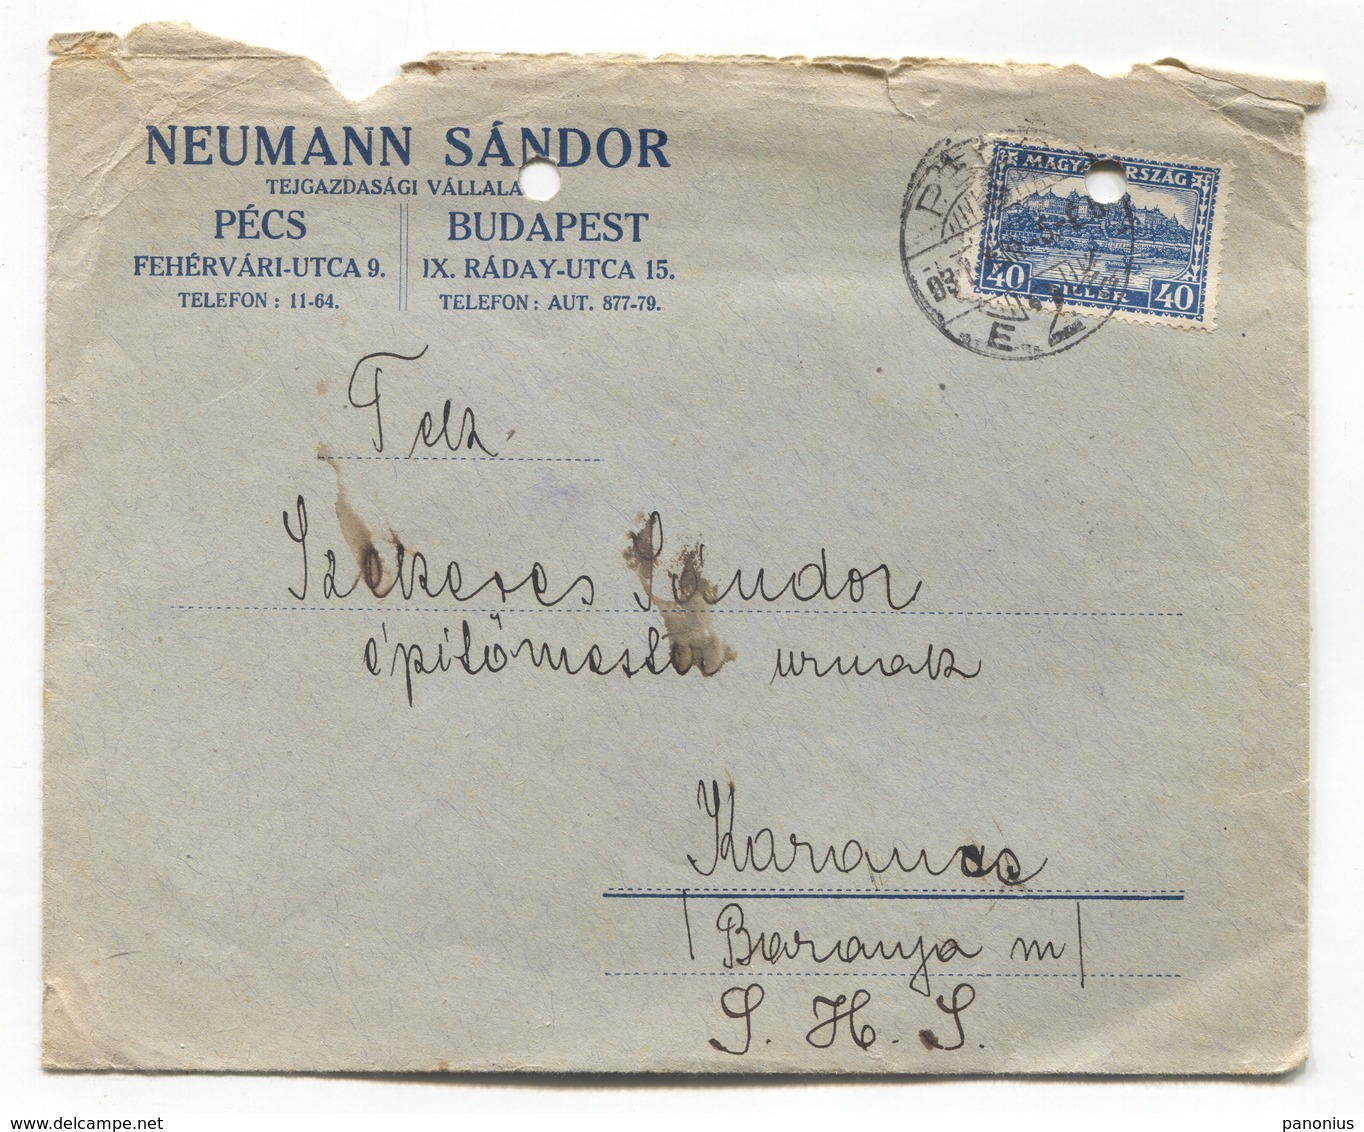 NEUMANN SÁNDOR
TEJGAZDASÁGI VÁLLALA
PÉCS
FEHÉRVÁRI-UTCA 9.
TELEFON : 11-64.
BUDAPEST
IX. RÁDAY-UTCA 15.
TELEFON : AUT. 877-79.
MAGYARORSZÁG
40 FILLÉR 40
E
Tek.
Szekeres Sándor
építőmester urnak
Karanac
(Baranya m)
S. H. S.
delcampe.net
panonius